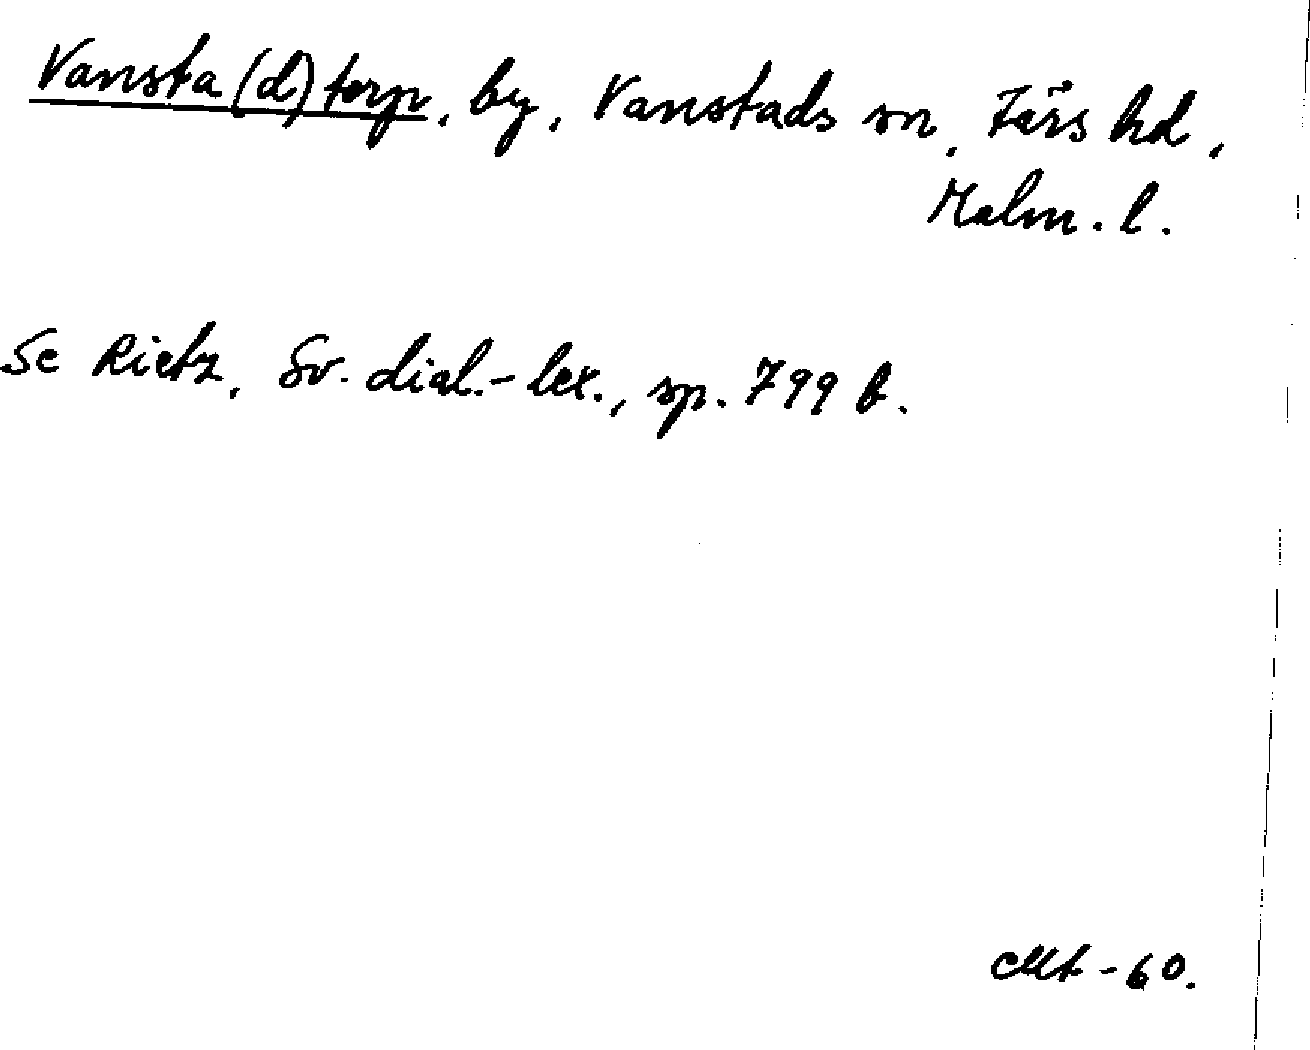 Vansta(d)torp, by, Vanstads sn, Färs hd,
Malm. l.
Se Rietz, Sv. dial.-lex., sp. 799 b.
-60.